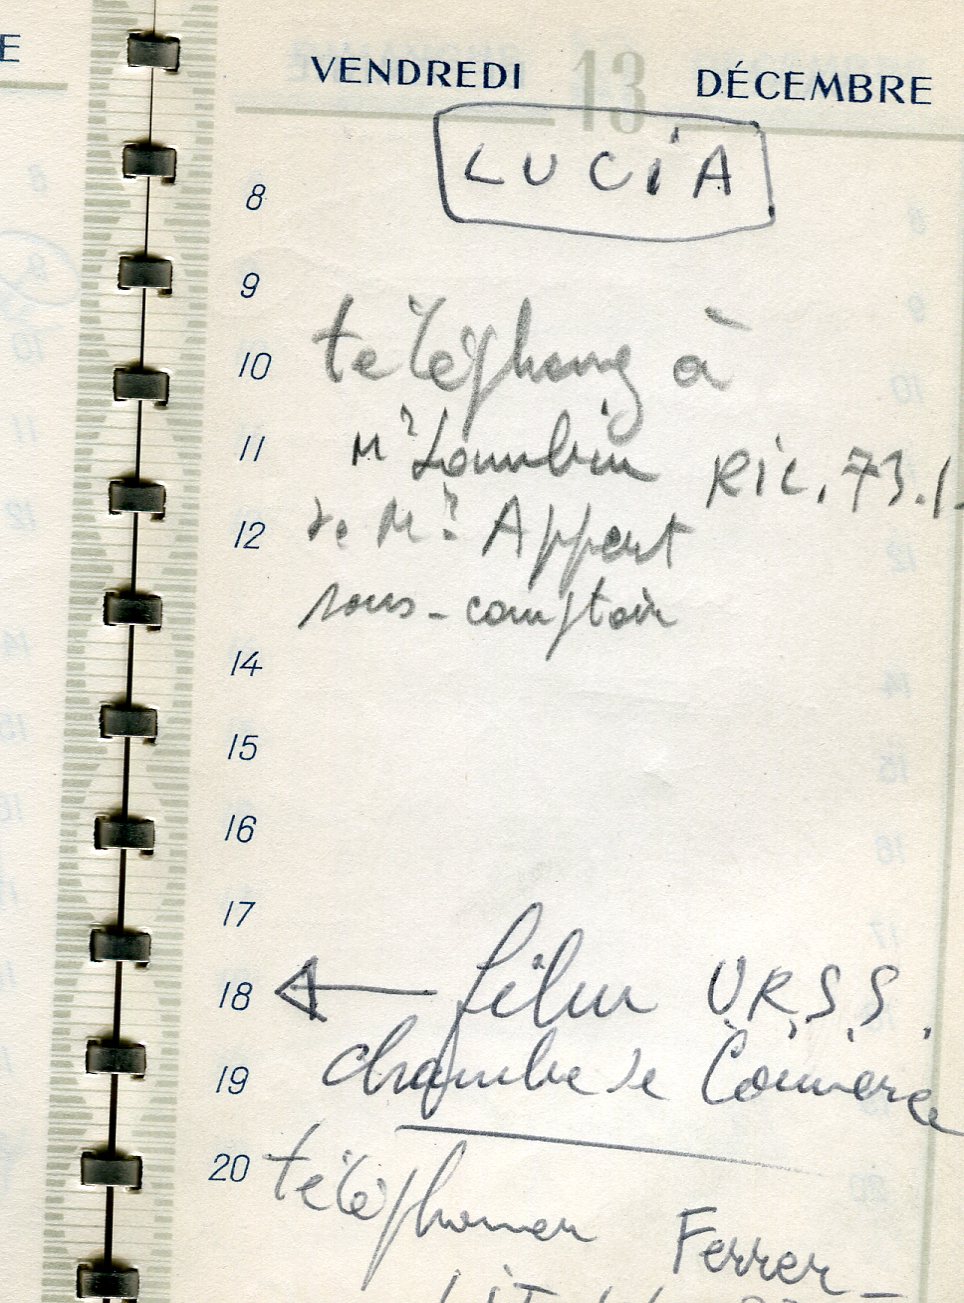 E
VENDREDI 13 DÉCEMBRE
LUCIA
8
9
10 téléphone à
11 Mr RIC. 73.1
12 de Mr Appert
sous-comptoir
14
15
16
17
18 film U.R.S.S.
19 chambre de Commerce
20 téléphoner Ferrer